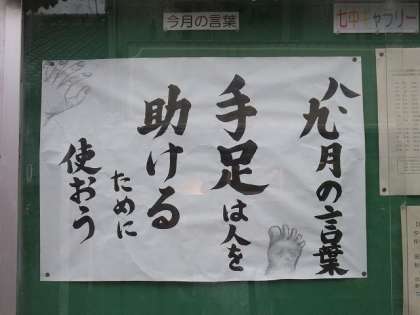 今月の言葉
七中ギャラリー
八、九月の言葉
手足は人を
助ける
ために
使おう